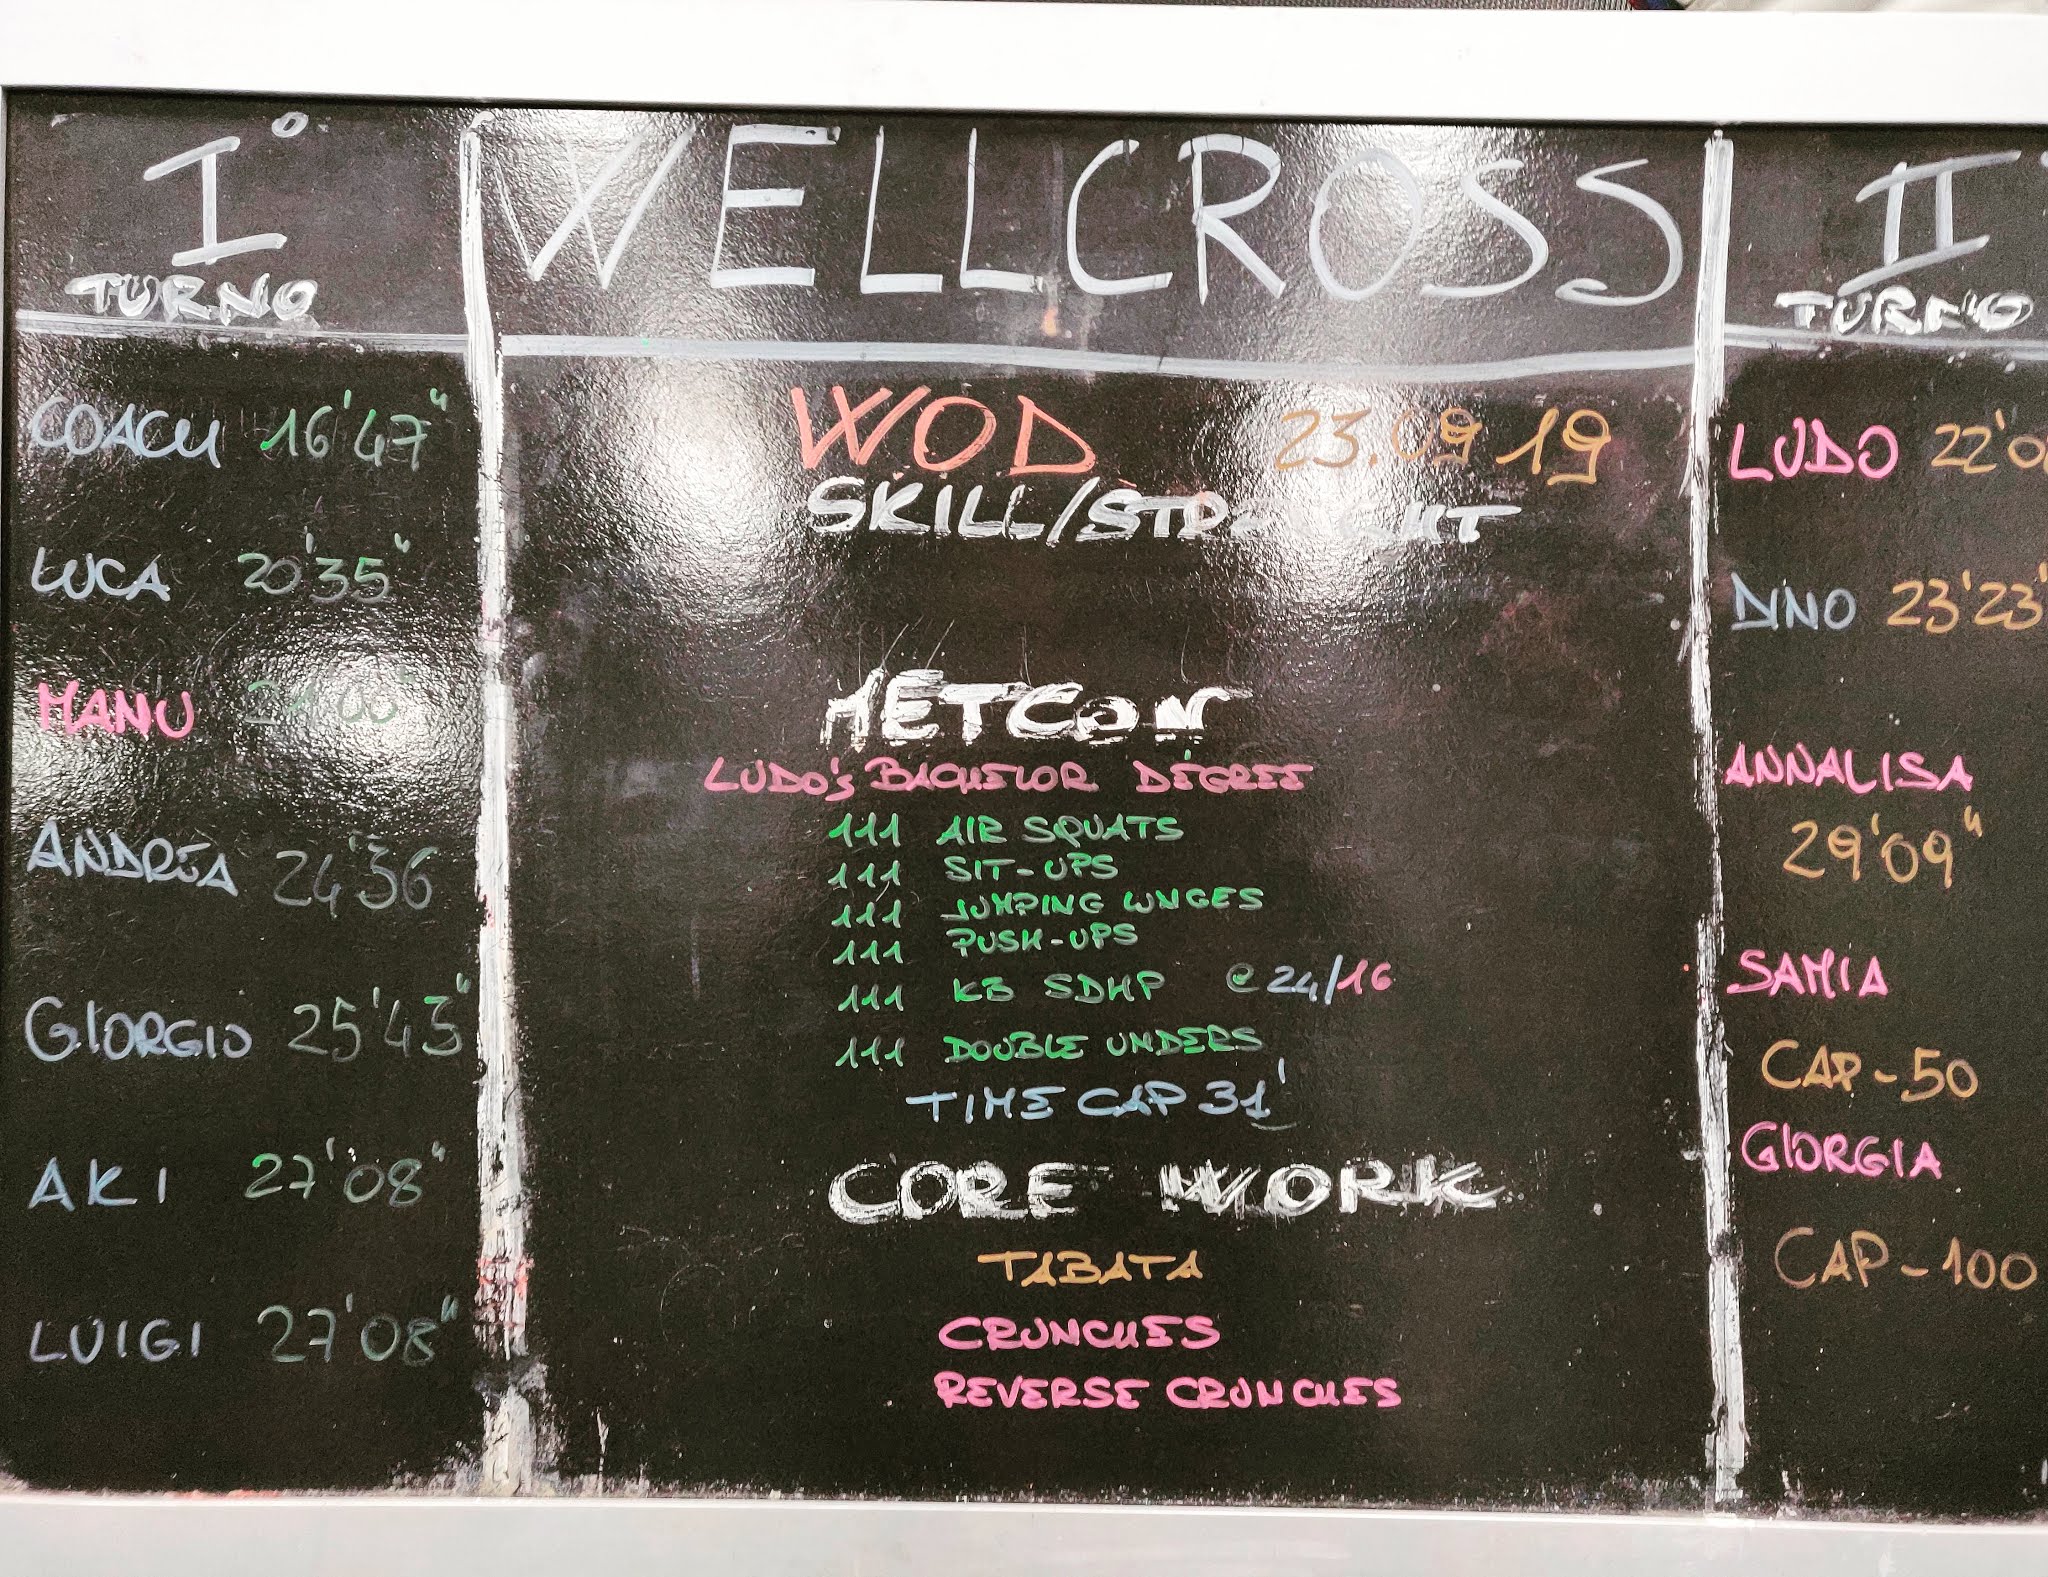 I°
TURNO
COACH 16'47"
LUCA 20'35"
MANU
ANDREA 24'36
GIORGIO 25'43"
AKI 27'08"
LUIGI 27'08"
WELLCROSS
WOD 23.09 19
SKILL/
METCON
LUDO'S BACHELOR DEGREE
111 AIR SQUATS
111 SIT-UPS
111 JUMPING LUNGES
111 PUSH-UPS
111 KB SDHP @ 24/16
111 DOUBLE UNDERS
TIME CAP 31'
CORE WORK
TABATA
CRUNCHES
REVERSE CRUNCHES
II
TURNO
LUDO
DINO 23'23'
ANNALISA
29'09"
SAMIA
CAP-50
GIORGIA
CAP-100